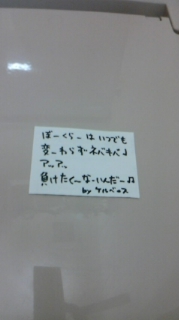 ぼーくらーはいつでも
変ーわらずネバギバ♪
アッアッ
負けたく〜なーいんだー♫
by ケルベロス